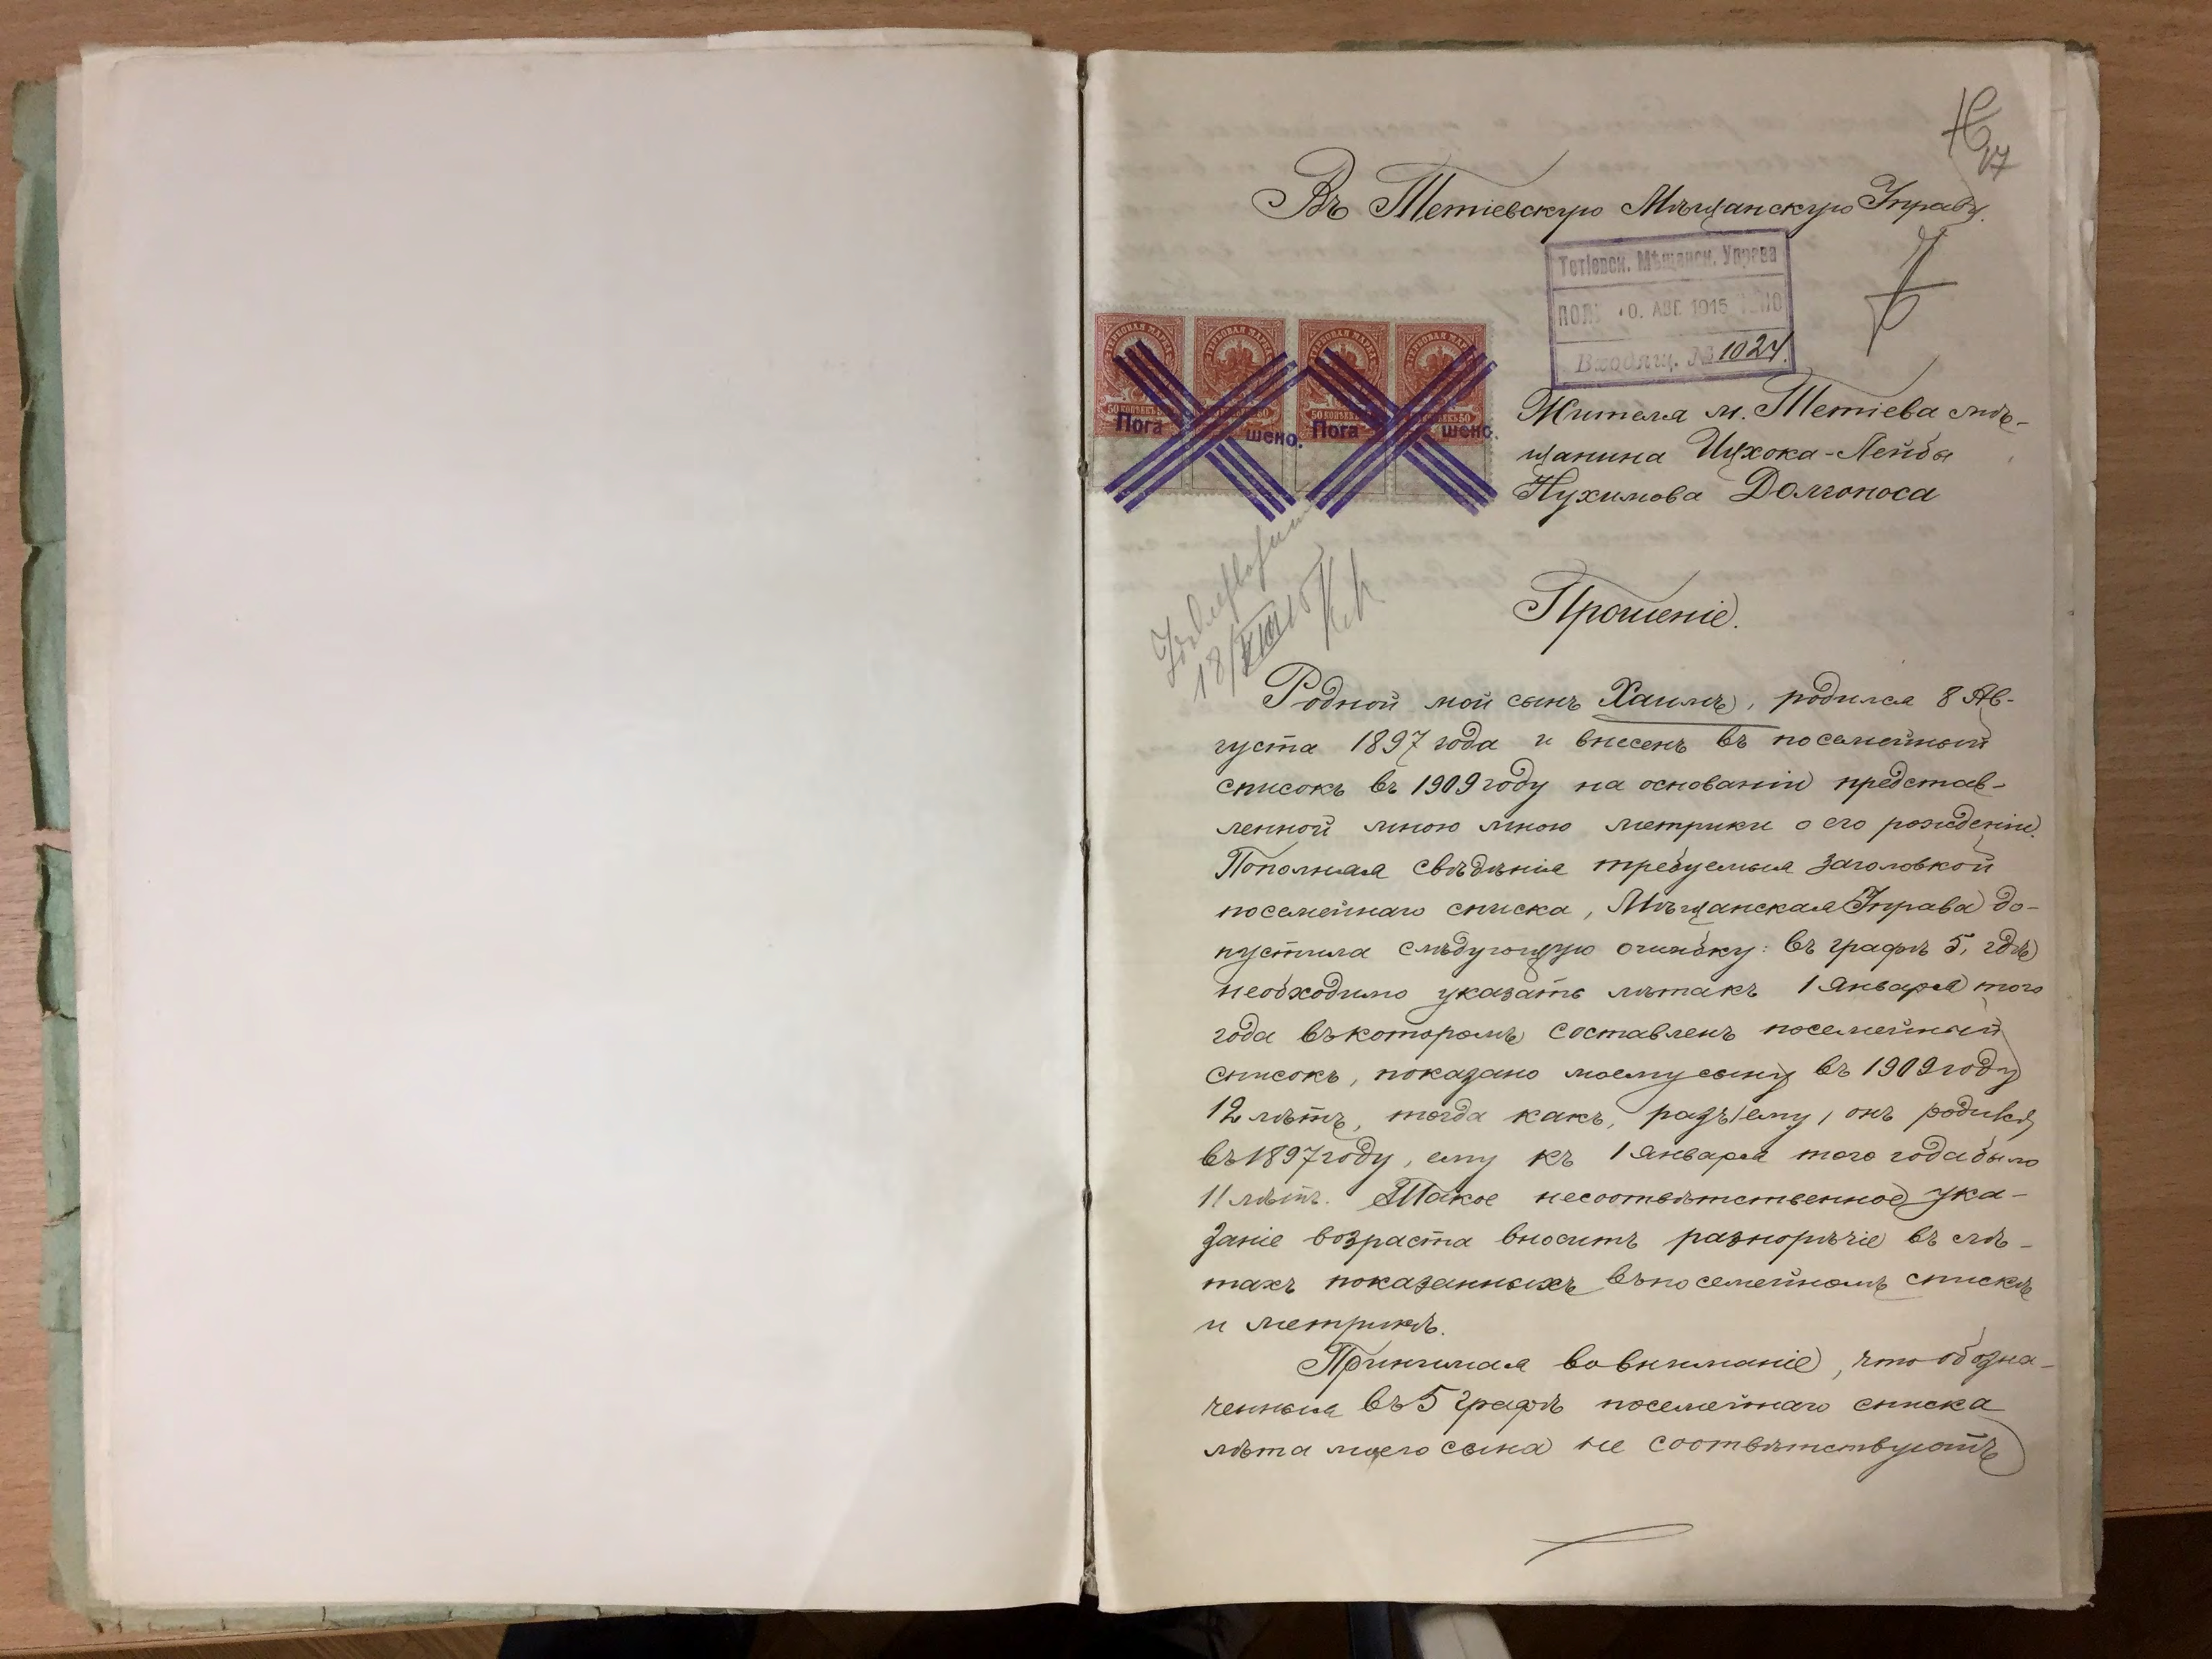 17
Въ Тетіевскую Мѣщанскую Управу.
Тетіевск. Мѣщанск. Управа
0. АВГ. 1915
Входящ. № 1024.
ГЕРБОВАЯ МАРКА ГЕРБОВАЯ МАРКА ГЕРБОВАЯ МАРКА ГЕРБОВАЯ МАРКА
50 КОПѢЕКЪ 50
Погашено. Погашено.
Жителя м. Тетіева мѣ-
щанина Ицхока-Лейбы
Нухимова Долгоноса
18/VIII 15
Прошеніе.
Родной мой сынъ Хаимъ, родился 8 Ав-
густа 1897 года и внесенъ въ посемейный
списокъ въ 1909 году на основаніи представ-
ленной мною мною метрики о его рожденіи.
Пополняя свѣдѣнія требуемыя заголовкой
посемейнаго списка, Мѣщанская Управа до-
пустила слѣдующую ошибку: въ графѣ 5, гдѣ
необходимо указать лѣта къ 1 января того
года въ которомъ составленъ посемейный
списокъ, показано моему сыну въ 1909 году
12 лѣтъ, тогда какъ, разъ ему, онъ родился
въ 1897 году, ему къ 1 января того года было
11 лѣтъ. Такое несоотвѣтственное ука-
заніе возраста вноситъ разнорѣчіе въ лѣ-
тахъ показанныхъ въ посемейномъ спискѣ
и метрикѣ.
Принимая во вниманіе, что обозна-
ченныя въ 5 графѣ посемейнаго списка
лѣта моего сына не соотвѣтствуютъ